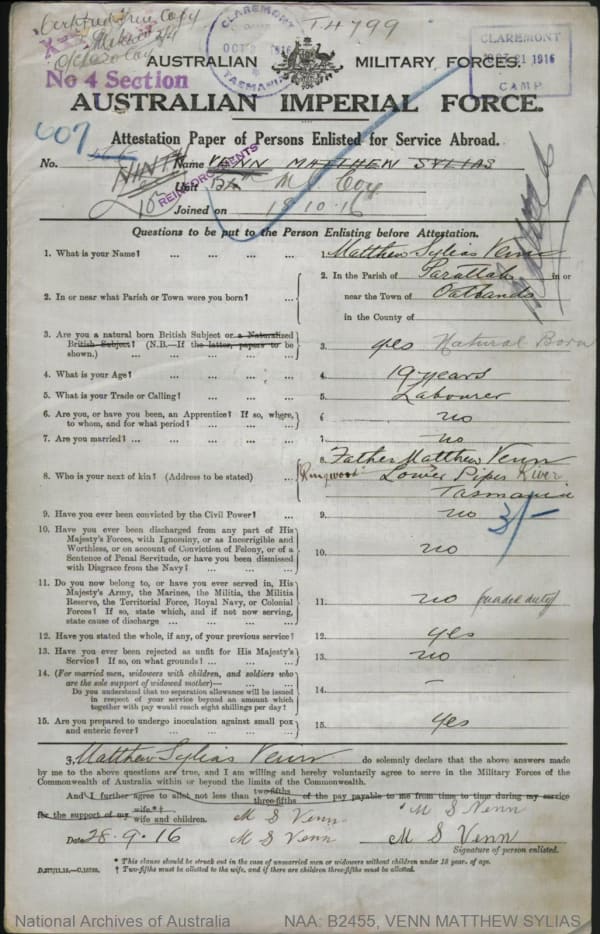 Certified True Copy
T4799
CLAREMONT
OCT 2 1916
TASMANIA
CLAREMONT
OCT 21 1916
CAMP
AUSTRALIAN MILITARY FORCES.
No 4 Section
AUSTRALIAN IMPERIAL FORCE.
609
Attestation Paper of Persons Enlisted for Service Abroad.
No. Name VENN MATTHEW SYLIAS
NINTH REINFORCEMENTS
Unit M G Coy
Joined on 18.10.16
Questions to be put to the Person Enlisting before Attestation.
1. What is your Name? ... ... ... ... 1. Matthew Sylias Venn
2. In or near what Parish or Town were you born? ... 2. In the Parish of Parattah in or
near the Town of Oatlands
in the County of
3. Are you a natural born British Subject or a Naturalized
British Subject? (N.B.—If the latter, papers to be
shown.) ... ... ... ... 3. yes Natural Born
4. What is your Age? ... ... ... ... 4. 19 years
5. What is your Trade or Calling? ... ... ... 5. Labourer
6. Are you, or have you been, an Apprentice? If so, where,
to whom, and for what period? ... ... ... 6 no
7. Are you married? ... ... ... ... ... 7. no
8. Who is your next of kin? (Address to be stated) ... 8. Father Matthew Venn
Ringwood Lower Piper River
Tasmania
9. Have you ever been convicted by the Civil Power? ... 9. no
3/-
10. Have you ever been discharged from any part of His
Majesty's Forces, with Ignominy, or as Incorrigible and
Worthless, or on account of Conviction of Felony, or of a
Sentence of Penal Servitude, or have you been dismissed
with Disgrace from the Navy? ... ... ... 10. no
11. Do you now belong to, or have you ever served in, His
Majesty's Army, the Marines, the Militia, the Militia
Reserve, the Territorial Force, Royal Navy, or Colonial
Forces? If so, state which, and if not now serving,
state cause of discharge ... ... ... 11. no (guard duty)
12. Have you stated the whole, if any, of your previous service? 12. yes
13. Have you ever been rejected as unfit for His Majesty's
Service? If so, on what grounds? ... ... ... 13. no
14. (For married men, widowers with children, and soldiers who
are the sole support of widowed mother)—
Do you understand that no separation allowance will be issued
in respect of your service beyond an amount which
together with pay would reach eight shillings per day? 14. –
15. Are you prepared to undergo inoculation against small pox
and enteric fever? ... ... ... ... 15. yes
I, Matthew Sylias Venn do solemnly declare that the above answers made
by me to the above questions are true, and I am willing and hereby voluntarily agree to serve in the Military Forces of the
Commonwealth of Australia within or beyond the limits of the Commonwealth.
And I further agree to allot not less than two-fifths three-fifths of the pay payable to me from time to time during my service
for the support of my wife*† wife and children. M S Venn M S Venn
Date 28.9.16 M S Venn M S Venn
Signature of person enlisted.
* This clause should be struck out in the case of unmarried men or widowers without children under 18 year. of age.
† Two-fifths must be allotted to the wife, and if there are children three-fifths must be allotted.
National Archives of Australia NAA: B2455, VENN MATTHEW SYLIAS